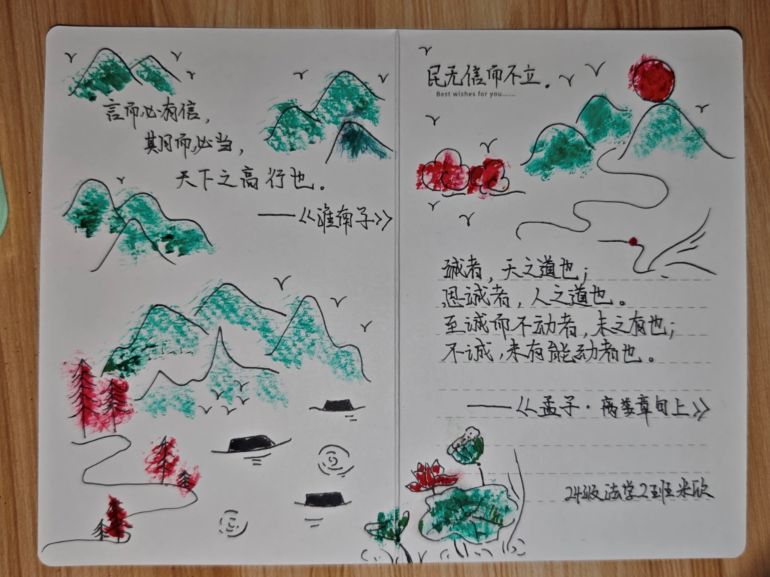 言而必有信，
期而必当，
天下之高行也。
——《淮南子》
民无信而不立。
Best wishes for you......
诚者，天之道也；
思诚者，人之道也。
至诚而不动者，未之有也；
不诚，未有能动者也。
——《孟子·离娄章句上》
24级法学2班米欣